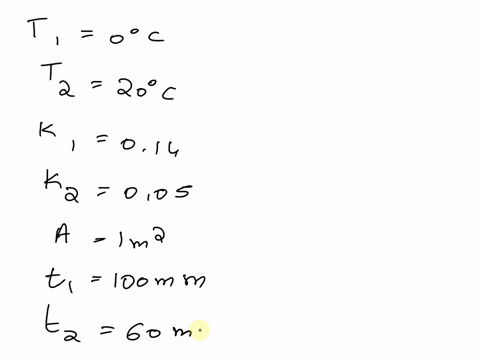 T₁ = 0°C
T₂ = 20°C
K₁ = 0.14
K₂ = 0.05
A = 1m²
t₁ = 100mm
t₂ = 60 m